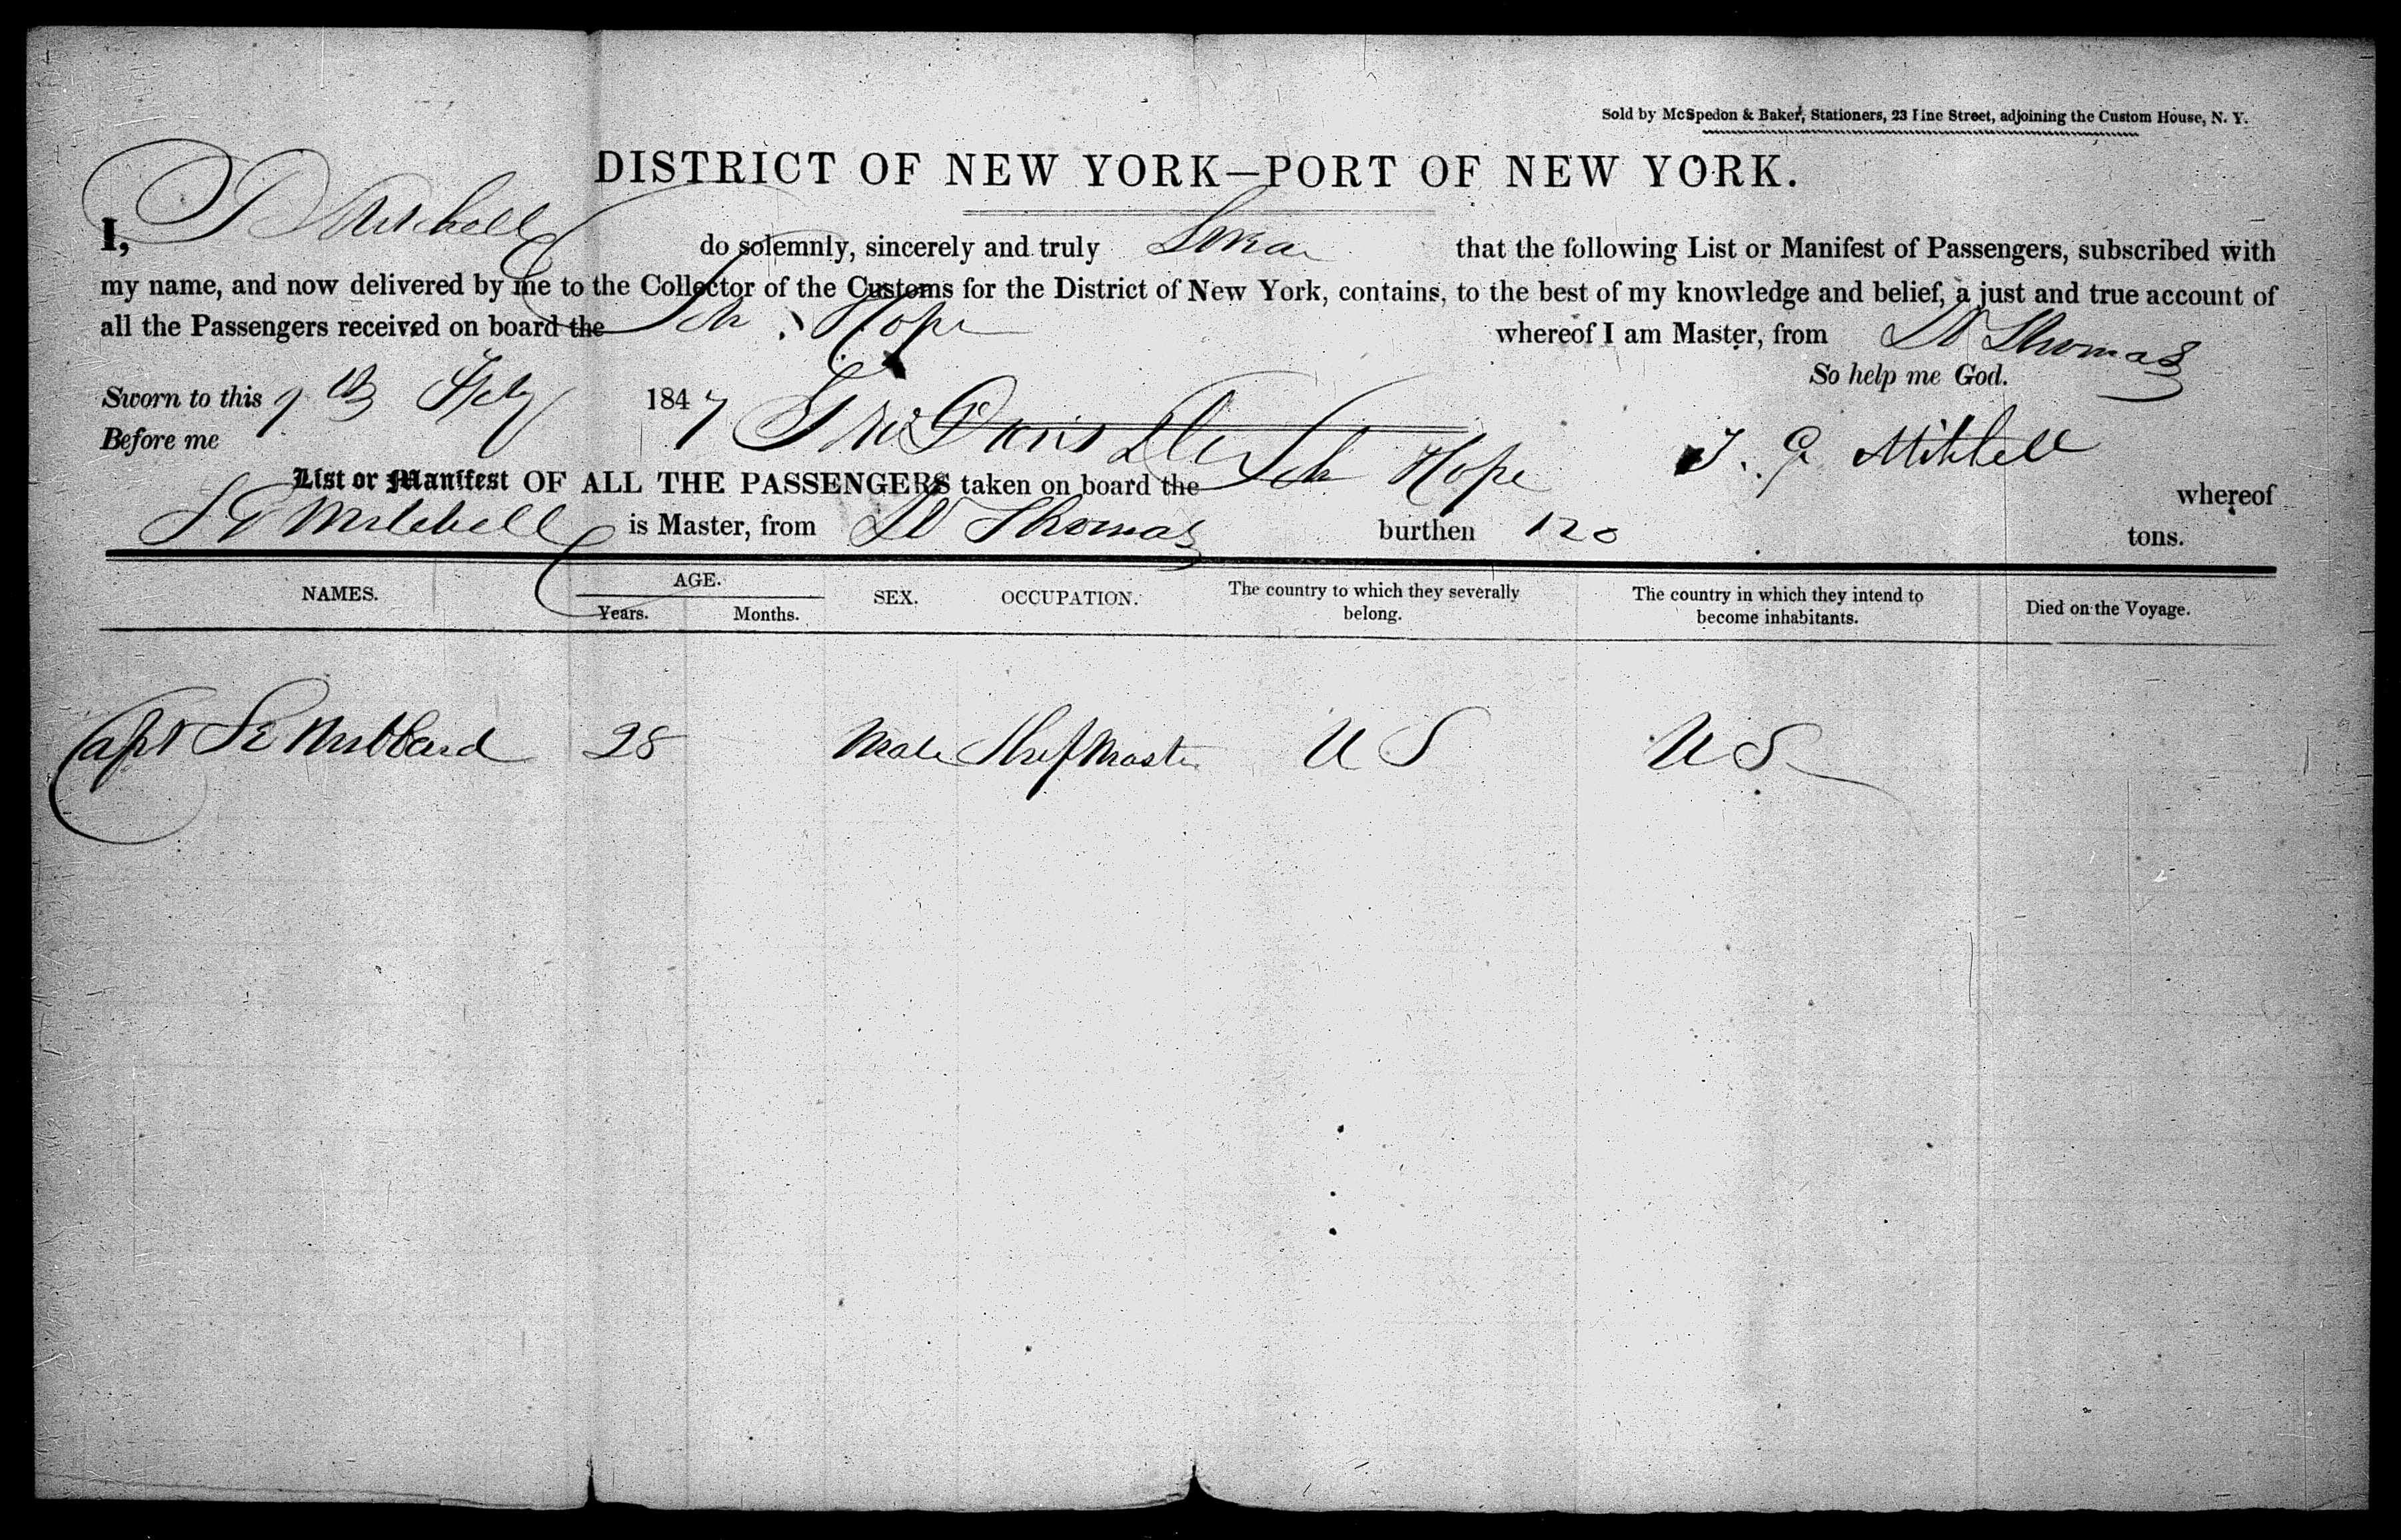 Sold by McSpedon & Baker, Stationers, 23 Pine Street, adjoining the Custom House, N. Y.
DISTRICT OF NEW YORK—PORT OF NEW YORK.
I, Mitchell do solemnly, sincerely and truly Swear that the following List or Manifest of Passengers, subscribed with
my name, and now delivered by me to the Collector of the Customs for the District of New York, contains, to the best of my knowledge and belief, a just and true account of
all the Passengers received on board the Sch Hope whereof I am Master, from St Thomas
So help me God.
Sworn to this 9th Feby 1847
Before me T. G Mitchell
List or Manifest OF ALL THE PASSENGERS taken on board the Sch Hope whereof
Mitchell is Master, from St Thomas burthen 120 tons.
NAMES. AGE. Years. Months. SEX. OCCUPATION. The country to which they severally belong. The country in which they intend to become inhabitants. Died on the Voyage.
Capt Hubbard 28 Male Ship Master U S U S